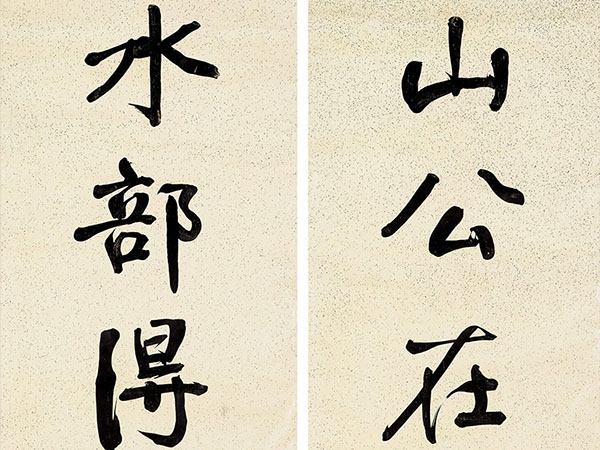 山公在
水部得